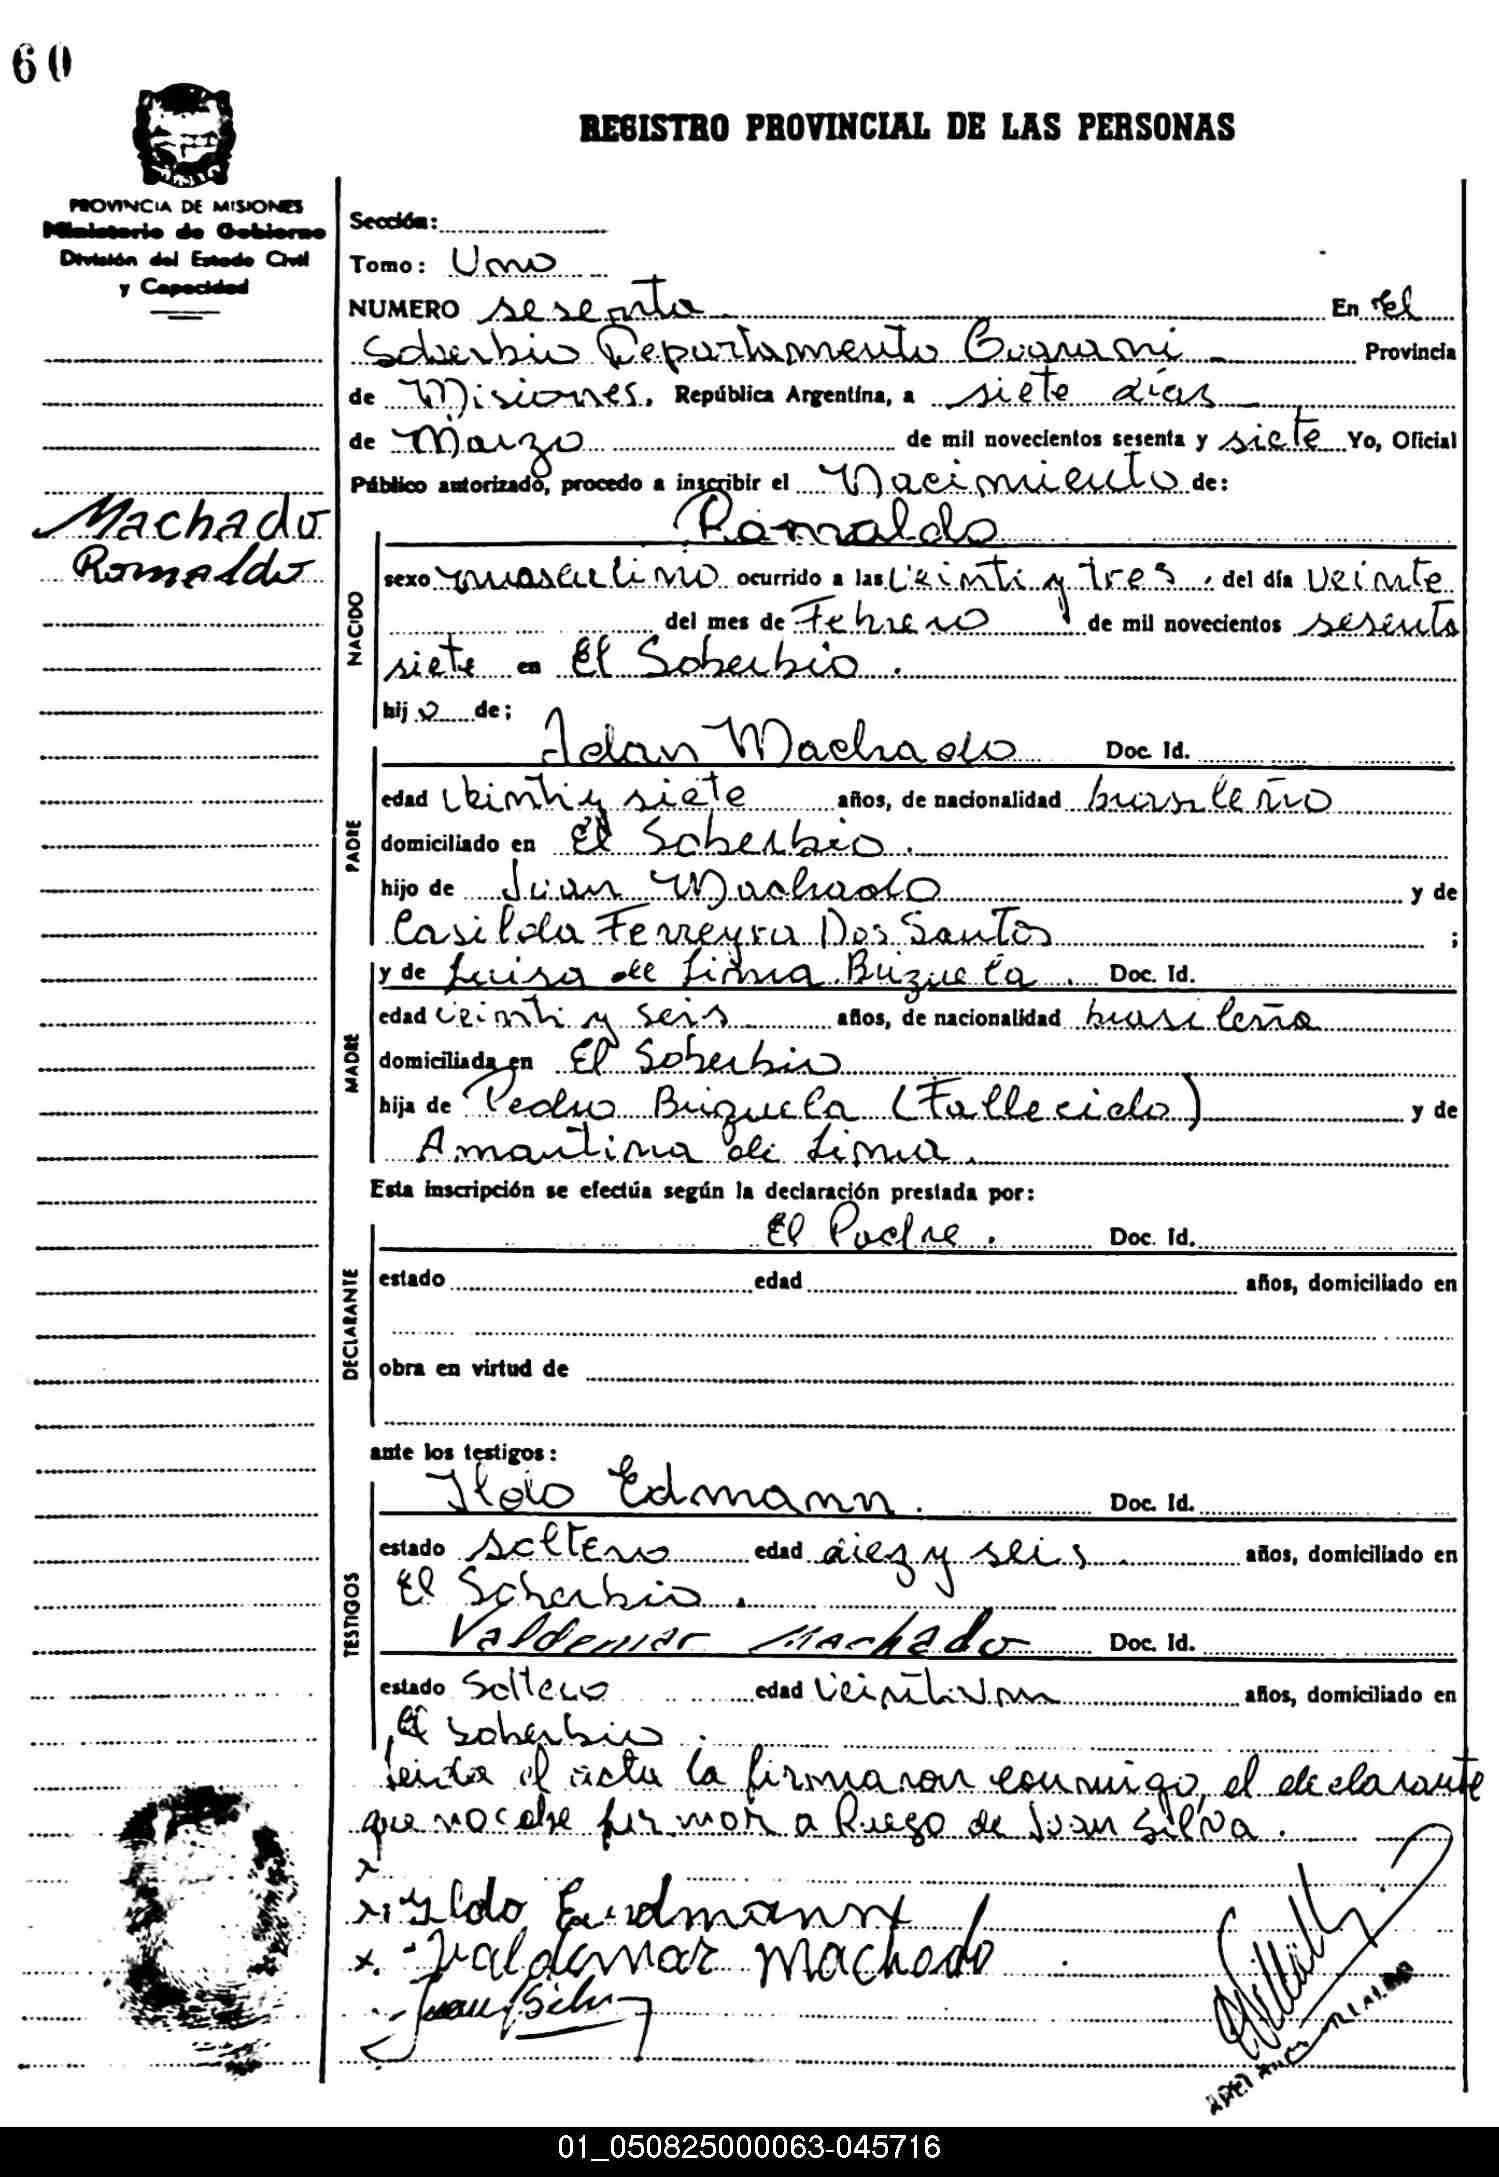 60
REGISTRO PROVINCIAL DE LAS PERSONAS
PROVINCIA DE MISIONES
Ministerio de Gobierno
División del Estado Civil
y Capacidad
Machado
Romaldo
Sección:
Tomo: Uno
NUMERO sesenta. En el
Soberbio Departamento Guarani Provincia
de Misiones, República Argentina, a siete días
de Marzo de mil novecientos sesenta y siete Yo, Oficial
Público autorizado, procedo a inscribir el Nacimiento de:
Romaldo
NACIDO
sexo masculino ocurrido a las veinti y tres. del día veinte
del mes de Febrero de mil novecientos sesenta
siete en El Soberbio.
hijo de;
PADRE
Adan Machado Doc. Id.
edad veinti y siete años, de nacionalidad brasileño
domiciliado en El Soberbio.
hijo de Juan Machado y de
Casilda Ferreyra Dos Santos ;
MADRE
y de Luisa de Lima Brizuela. Doc. Id.
edad veinti y seis años, de nacionalidad brasileña
domiciliada en El Soberbio
hija de Pedro Brizuela (Fallecido) y de
Amantina de Lima.
Esta inscripción se efectúa según la declaración prestada por:
DECLARANTE
El Padre. Doc. Id.
estado edad años, domiciliado en
obra en virtud de
ante los testigos:
TESTIGOS
Ildo Edmann. Doc. Id.
estado soltero edad diez y seis. años, domiciliado en
El Soberbio.
Valdemar Machado Doc. Id.
estado Soltero edad veintiun años, domiciliado en
El Soberbio.
Leida el acta la firmaron conmigo, el declarante
que no sabe firmar a Ruego de Juan Silva.
x
x. Ildo Eurdmann
x. Valdemar Machado
Juan Silva
01_050825000063-045716